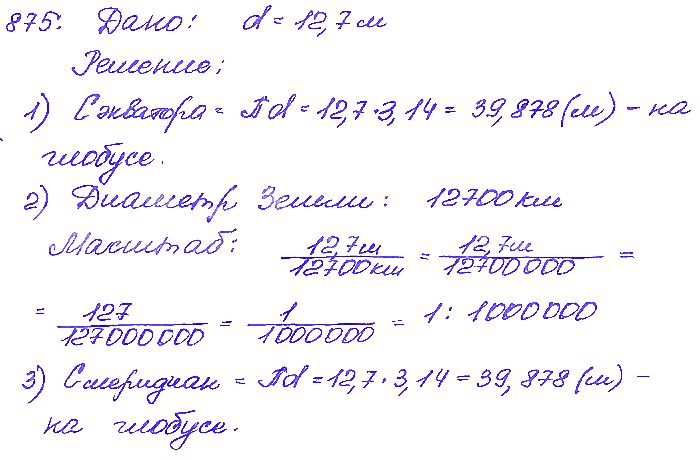 875. Дано: d = 12,7 м
Решение:
1) Cэкватора = πd = 12,7 · 3,14 = 39,878 (м) – на
глобусе.
2) Диаметр Земли: 12700 км
Масштаб: 12,7м/12700км = 12,7м/12700000 =
= 127/127000000 = 1/1000000 = 1 : 1000000
3) Cмеридиан = πd = 12,7 · 3,14 = 39,878 (м) –
на глобусе.